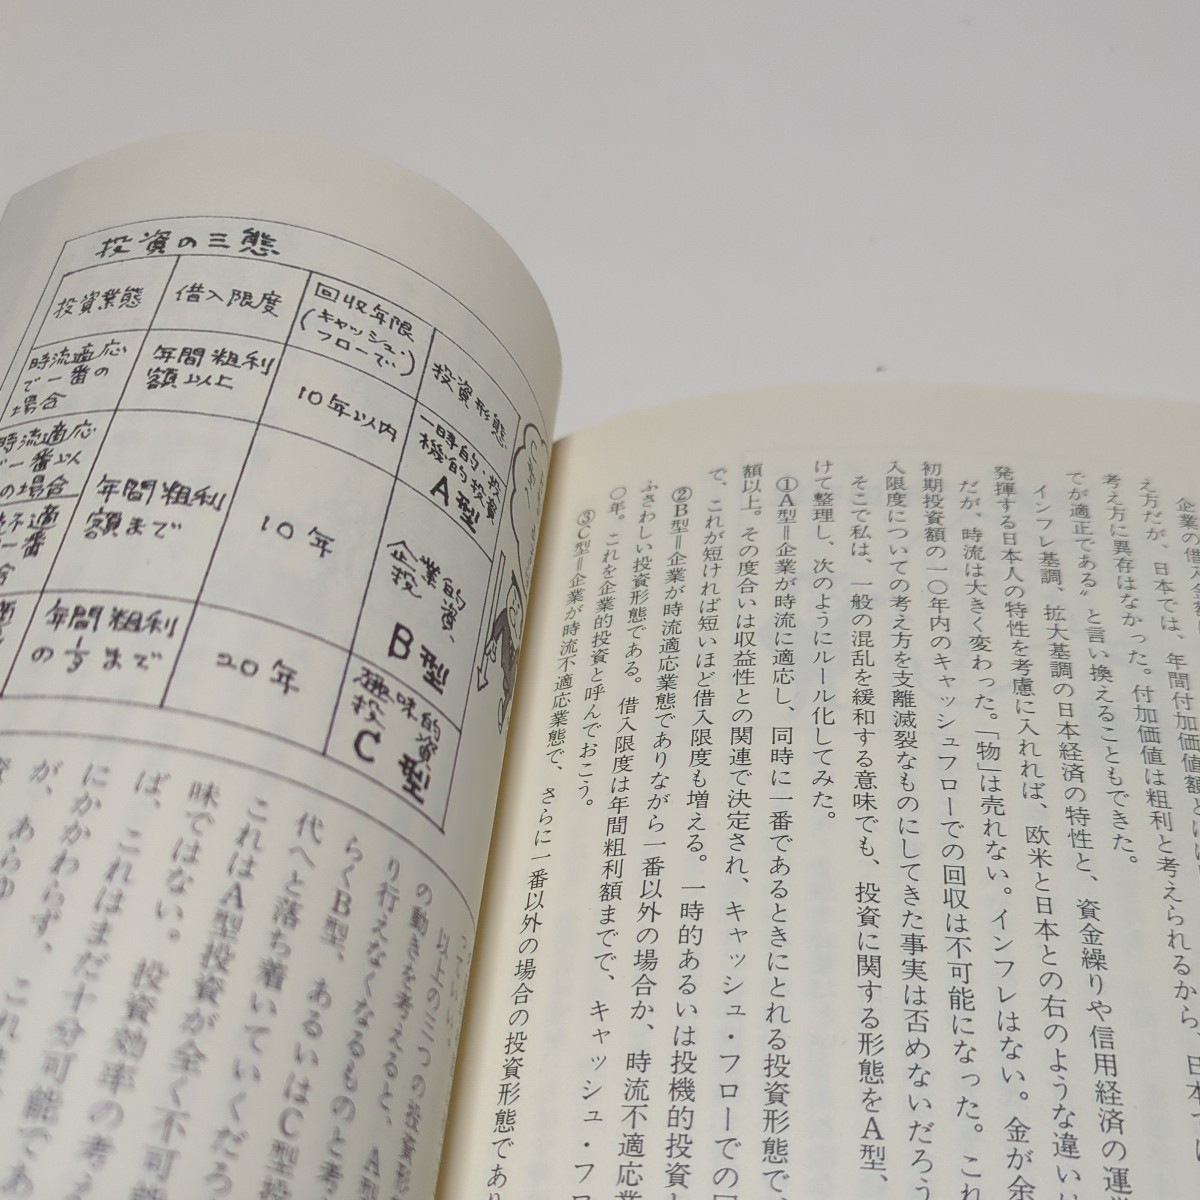 企業の借入金
え方だが、日本では、年間付加価値額とは
考え方に異存はなかった。付加価値は粗利と考えられるから、日本では
でが適正である〟と言い換えることもできた。
インフレ基調、拡大基調の日本経済の特性と、資金繰りや信用経済の運
発揮する日本人の特性を考慮に入れれば、欧米と日本との右のような違い
だが、時流は大きく変わった。「物」は売れない。インフレはない。金が余
初期投資額の一〇年内のキャッシュフローでの回収は不可能になった。これ
入限度についての考え方を支離滅裂なものにしてきた事実は否めないだろう
そこで私は、一般の混乱を緩和する意味でも、投資に関する形態をA型、
けて整理し、次のようにルール化してみた。
①A型＝企業が時流に適応し、同時に一番であるときにとれる投資形態で、
額以上。その度合いは収益性との関連で決定され、キャッシュ・フローでの回
で、これが短ければ短いほど借入限度も増える。一時的あるいは投機的投資
②B型＝企業が時流適応業態でありながら一番以外の場合か、時流不適応業
ふさわしい投資形態である。借入限度は年間粗利額までで、キャッシュ・フ
〇年。これを企業的投資と呼んでおこう。
③C型＝企業が時流不適応業態で、さらに一番以外の場合の投資形態であり
投資の三態
投資業態 借入限度 回収年限（キャッシュ・フローで） 投資形態
時流適応で一番の場合 年間粗利額以上 10年以内 一時的・投機的投資 A型
時流適応で一番以の場合
不適一番 年間粗利額まで 10年 企業的投資、B型
年間粗利の1/3まで 20年 趣味的投資C型
っていい
以上の三つの投資形
の動きを考えると、A型
り行えなくなるものと考
らくB型、あるいはC型投
代へと落ち着いていくだろ
これはA型投資が全く不可
味ではない。投資効率の考え
ば、これはまだ十分可能であ
にかかわらず、これ
が、あらゆ